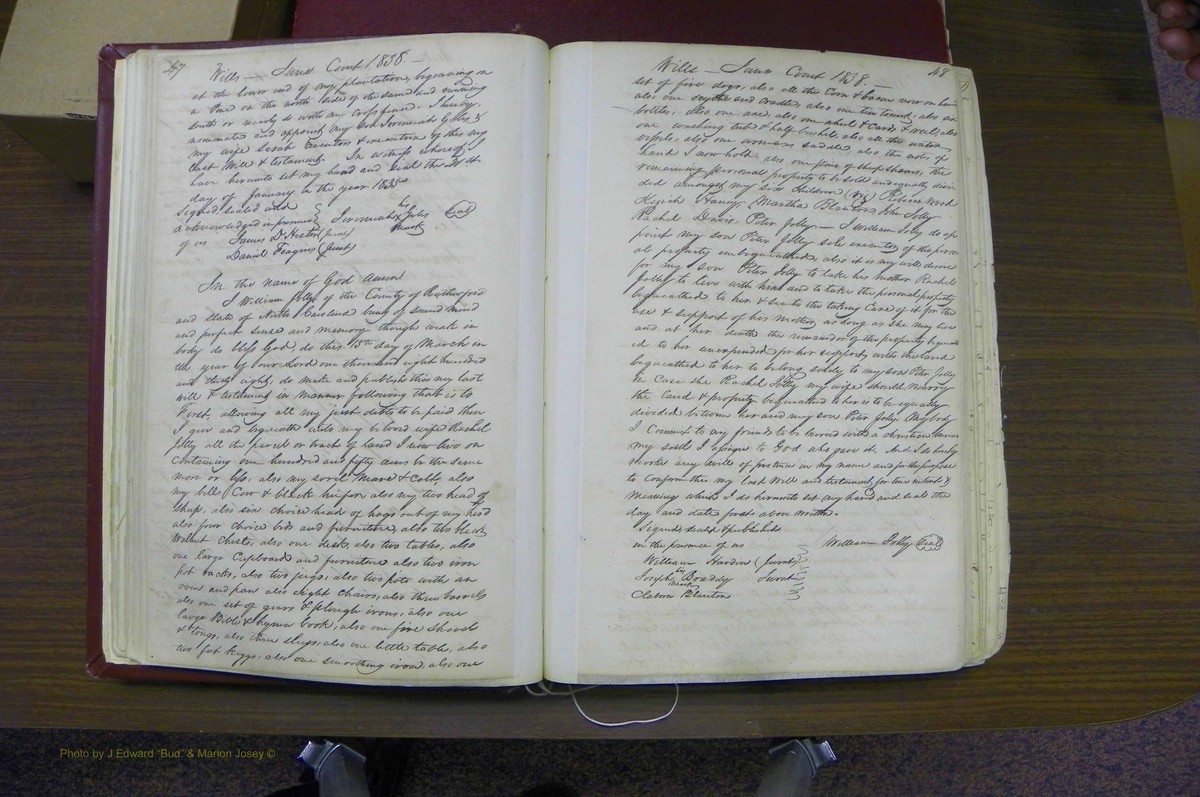 47
Wills — June Court 1838 —
at the lower end of my plantation, beginning on
a Pine on the north side of the same and running
south or nearly so with my cross fence. I hereby
nominate and appoint my son Jeremiah Giles &
my wife Sarah Executors & executrix of this my
Last Will & testament. In witness whereof I
have hereunto set my hand and seal the
day of January in the year 1835
Signed sealed and
acknowledged in presence
of us
Jeremiah his mark Giles (Seal)
James D (Jurat)
Daniel (Jurat)
In the name of God Amen
I William Jolly of the County of Rutherford
and State of North Carolina being of sound mind
and perfect sense and memory though weak in
body do bless God, do this 15th day of March in
the year of our Lord one thousand eight hundred
and thirty eight, do make and publish this my last
will & testament in manner following that is to
First, allowing all my just debts to be paid then
I give and bequeath unto my beloved wife Rachel
Jolly all the parcel or tract of land I now live on
containing one hundred and fifty acres be the same
more or less. also my sorrel mare & Colt, also
my bell Cow & black heifer, also my two head of
sheep, also six choice head of hogs out of my herd
also four choice beds and furniture, also two black
Walnut Chests, also one desk, also two tables, also
one large Cupboard and furniture also two iron
pot racks, also two jugs, also two pots with an
oven and pan also eight Chairs, also three barrels
also one set of gears & plough irons, also one
large Bible & hymn book, also one fire shovel
& tongs, also three slays, also one little table, also
two fat kegs, also one smoothing iron, also one
48
Wills — June Court 1838. —
set of fire dogs, also all the Corn & bacon now on hand
also one scythe and cradle, also one tin, also six
bottles, also one axe, also one wheel & Cards & reel, also
one washing tub & half bushel, also all the water
vessels, also one womans saddle, also the note of
hand I now hold, also one pair of sheep shears, the
remaining personal property to be sold and equally divi-
ded amongst my six children (viz) Rebecca
Keziah Haney, Martha Blanton, John Jolly
Rachel Davis, Peter Jolly. — I William Jolly do ap
point my son Peter Jolly sole executor of the person
al property unbequeathed, also it is my will, desire
for my Son Peter Jolly to take his mother Rachel
Jolly to live with him and to take the personal property
bequeathed to her & see to the taking Care of it for the
use & support of his mother as long as she may live
and at her death the remainder of the property bequeath
ed to her unexpended for her support, with the land
bequeathed to her to belong solely to my son Peter Jolly
in Case she Rachel Jolly my wife should marry
the land & property bequeathed to her is to be equally
divided between her and my son Peter Jolly. My body
I Commit to my friends to be buried with a christian
my soul I assign to God who gave it. And I do hereby
revoke any wills of pretense in my name and for the purpose
to Confirm this my last Will and testament, for true intent &
meaning which I do hereunto set my hand and seal the
day and date first above written.
Signed, sealed & published
in the presence of us
William Jolly (Seal)
William Hardin (Jurat)
Joseph his mark Bradley Jurat
Blanton
Photo by J Edward "Bud" & Marion Josey ©